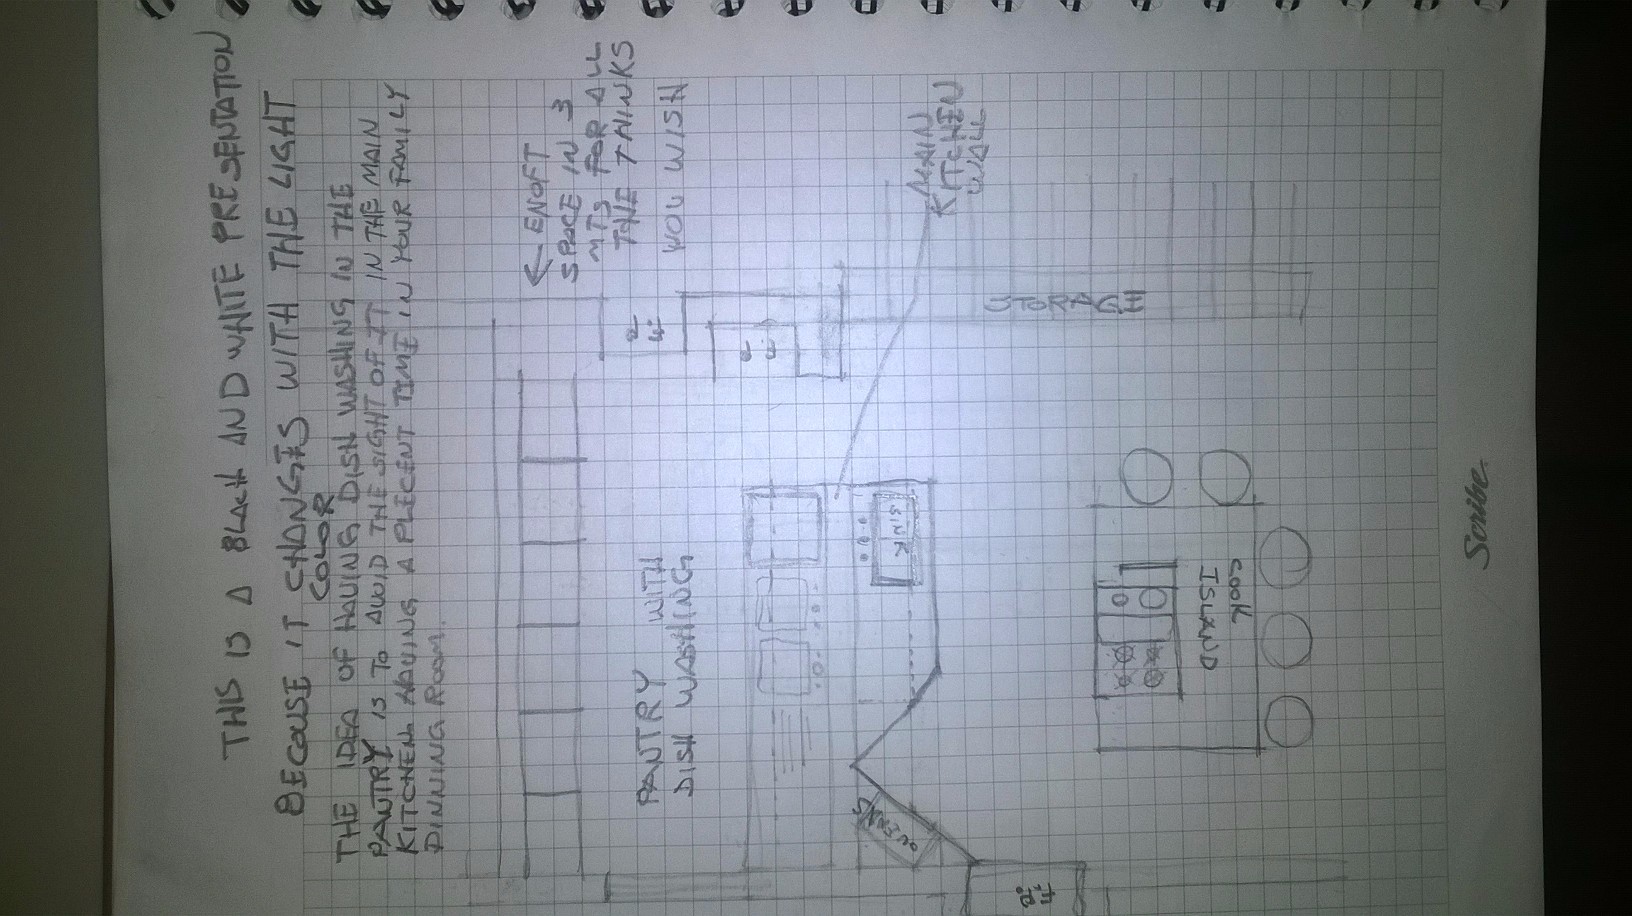 THIS IS A BLACK AND WHITE PRESENTATION
BECOUSE IT CHANGES WITH THE LIGHT
COLOR
THE IDEA OF HAVING DISH WASHING IN THE
PANTRY IS TO AVOID THE SIGHT OF IT IN THE MAIN
KITCHEN HAVING A PLECENT TIME IN YOUR FAMILY
DINNING ROOM.
← ENOFT
SPACE IN 3
MTS FOR ALL
THE THINKS
WOU WISH
PANTRY WITH
DISH WASHING
MAIN
KITCHEN
WALL
STORAGE
SINK
OVENS
COOK
ISLAND
Scribe